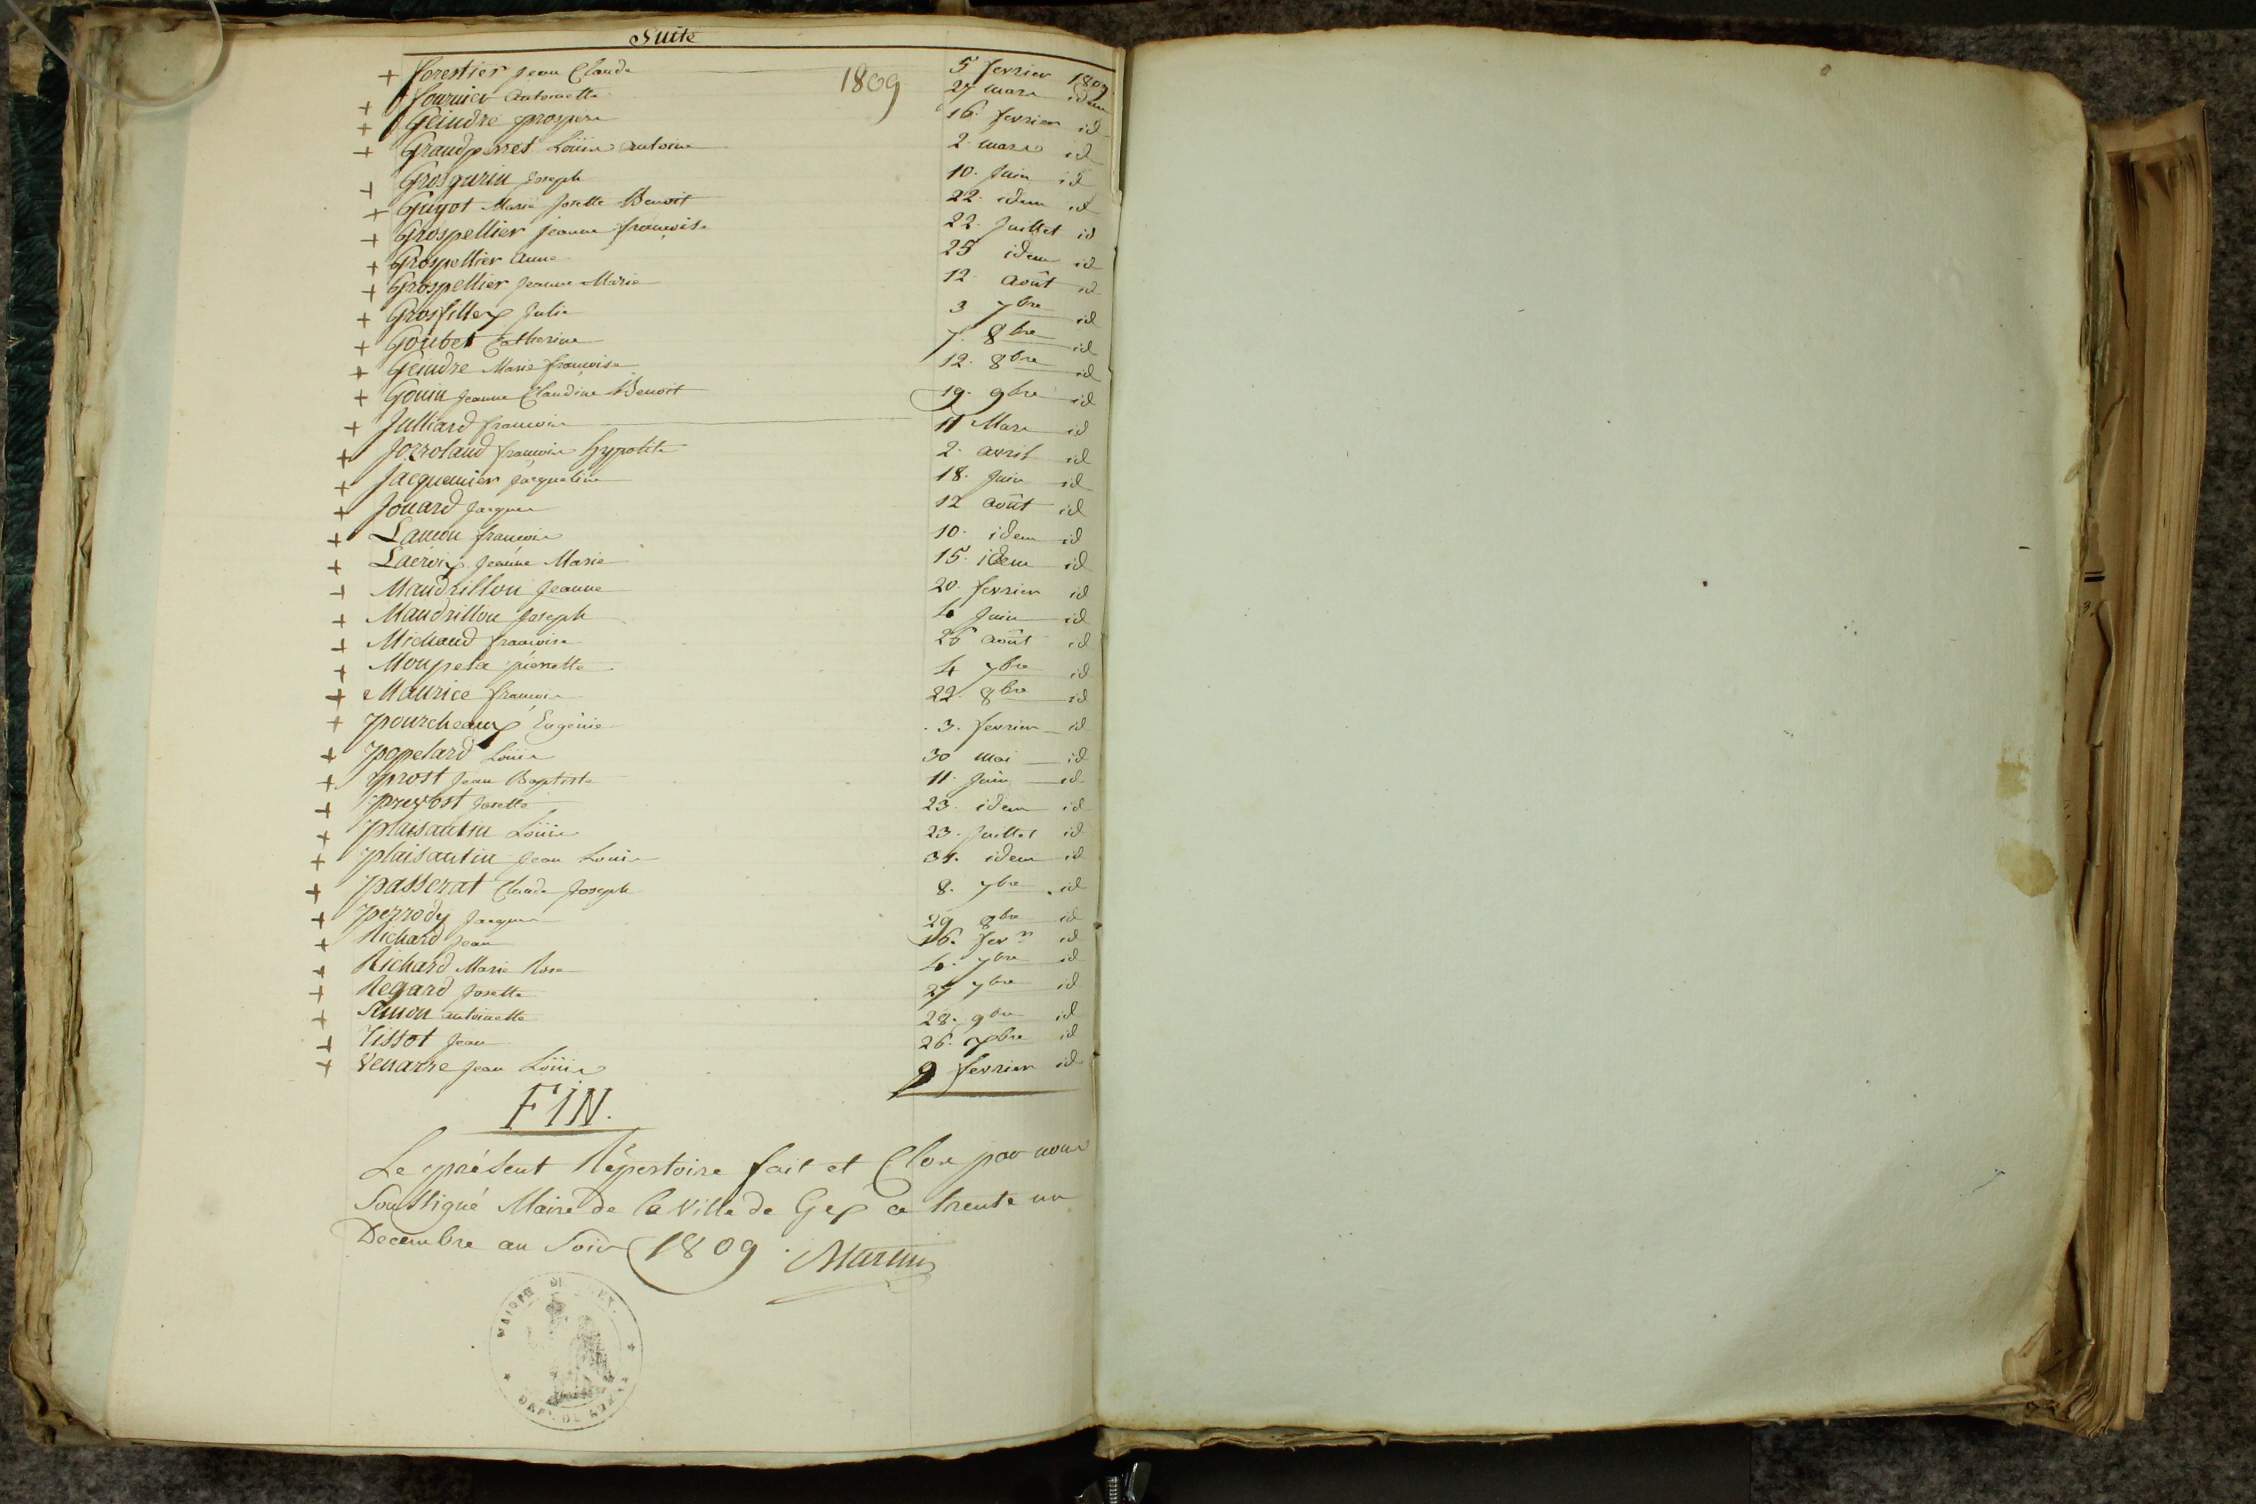 Suite
1809
+ forestier Jean Claude 5 fevrier 1809
+ fournier antoinette 27 mars idem
+ Geindre prosper 16. fevrier id
+ Grandperret Loüis antoine 2. mars id
+ Grosgurin Joseph 10. Juin id
+ Guyot Marie Josette Benoit 22. idem id
+ Grospellier jeanne françoise 22. Juillet id
+ Grospellier anne 25 idem id
+ Grospellier jeanne Marie 12. août id
+ Grosfilley Julie 3 7bre id
+ Goubet Catherine 7. 8bre id
+ Geindre Marie françoise 12. 8bre id
+ Gouin jeanne Claudine Benoit 19. 9bre id
+ Julliard françois 11 Mars id
+ Jozroland françois hypolite 2. avril id
+ Jacquemier Jacqueline 18. Juin id
+ Jouard Jacques 12 août id
+ Lamon françois 10. idem id
+ Lacroix Jeanne Marie 15. idem id
+ Mandrillon Jeanne 20. fevrier id
+ Mandrillon Joseph 4 Juin id
+ Michaud françoise 26 août id
+ pierrette 4 7bre id
+ Maurice françois 22. 8bre id
+ pourcheaux Eugénie 3. fevrier id
+ popelard Loüis 30 mai id
+ prost Jean Baptiste 11. Juin id
+ prevost Josette 23. idem id
+ plaisantin Loüis 23. Juillet id
+ plaisantin Jean Louis 31. idem id
+ passerat Claude Joseph 8. 7bre id
+ perrody Jacques 29 8bre id
+ Richard Jean 16. fevr id
+ Richard Marie Rose 4. 7bre id
+ Regard Josette 27 7bre id
+ Simon antoinette 28. 9bre id
+ Tissot Jean 26. id
+ Venarre Jean Loüis 9 fevrier id
FIN.
Le présent Répertoire fait et Clos par nous
Soussigné Maire de la Ville de Gex ce trente un
Decembre au Soir 1809. Martin
MAIRIE DE GEX.
DEPT. DU